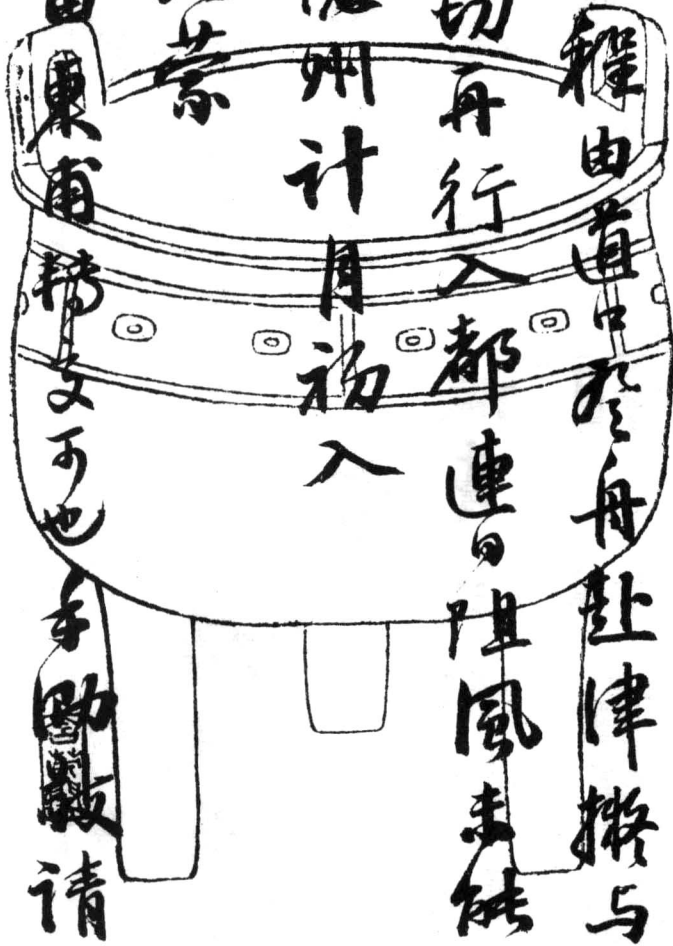 程由道口登舟赴津擬与
切再行入都連日阻風未能
州計月初入
蒙
東甫轉交可也手敬請